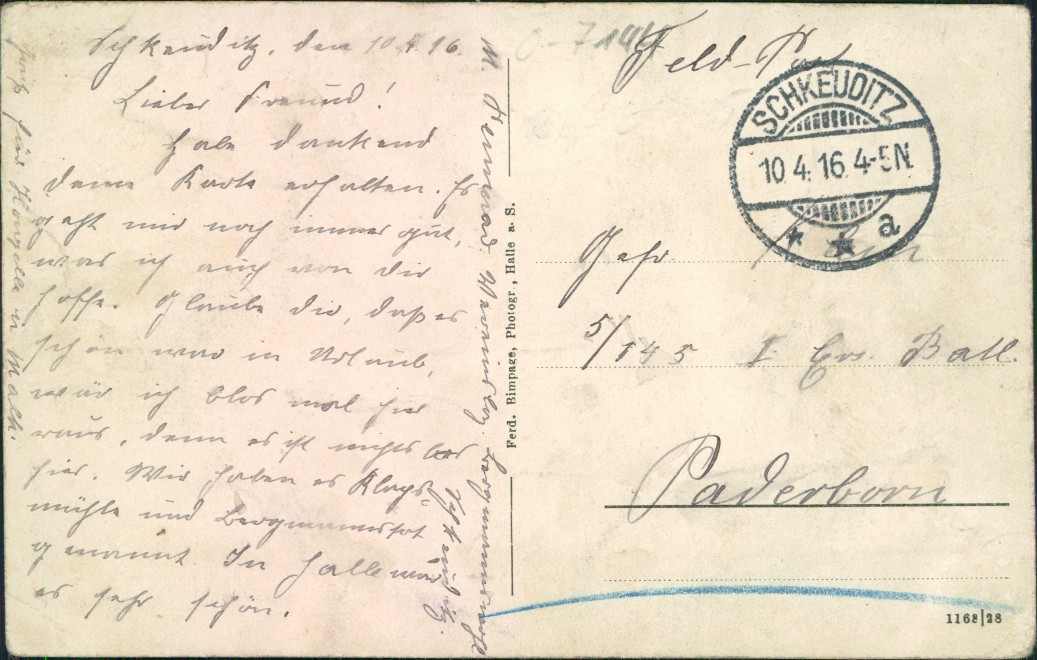 Schkeuditz, den 10.4.16.
Lieber Freund!
Habe dankend
deine Karte erhalten. Es
geht mir noch immer gut,
was ich auch von dir
hoffe. Glaube dir, daß es
schön war in Urlaub,
wär ich blos mal hier
raus, denn es ist nichts los
hier. Wir haben es Klaps-
mühle und Bergmannstot
genannt. In Halle war
es sehr schön.
Schkeuditz.
Feld-Post
SCHKEUDITZ
10.4.16.4-5N.
* * a
Gefr
5/145 I Ers. Batl.
Paderborn
Ferd. Bimpage, Photogr., Halle a. S.
1168|28